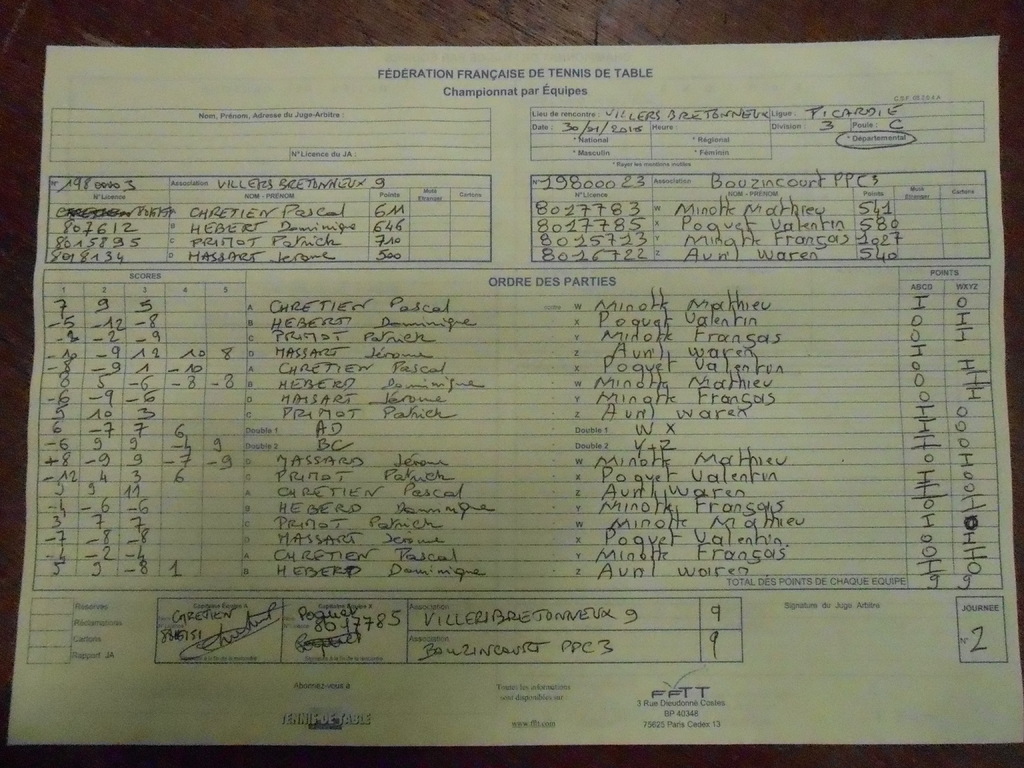 FÉDÉRATION FRANÇAISE DE TENNIS DE TABLE
Championnat par Équipes
Nom, Prénom, Adresse du Juge-Arbitre :
N° Licence du JA :
Lieu de rencontre : VILLERS BRETONNEUX Ligue : PICARDIE
Date : 30/01/2016 Heure : Division : 3 Poule : C
* National * Régional * Départemental
* Masculin * Féminin
* Rayer les mentions inutiles
N° 1980003 Association VILLERS BRETONNEUX 9
N° Licence NOM - PRÉNOM Points Muté Etranger Cartons
CHRETIEN Pascal 611
807612 B HEBERT Dominique 646
8015895 C PRIMOT Patrick 710
8018134 D MASSART Jérome 500
N° 19800023 Association Bouzincourt PPC3
N° Licence NOM - PRÉNOM Points Muté Etranger Cartons
8017783 W Minotte Mathieu 541
8017785 X Poquet Valentin 580
8015713 Y Minotte Français 1027
8016722 Z Avril waren 540
SCORES ORDRE DES PARTIES POINTS
1 2 3 4 5 ABCD WXYZ
7 9 5 A CHRETIEN Pascal W Minotte Mathieu I 0
-5 -12 -8 B HEBERT Dominique X Poquet Valentin 0
-2 -9 C PRIMOT Patrick Y Minotte Français 0
-10 -9 12 -10 8 D MASSART Jérome Z Avril waren
-8 -9 1 -10 A CHRETIEN Pascal X Poquet Valentin 0
8 5 -6 -8 -8 B HEBERD Dominique W Minotte Mathieu 0
-6 -9 -6 D MASSART Jérome Y Minotte Français 0
9 10 3 C PRIMOT Patrick Z Avril waren 0
6 -7 7 6 Double 1 AD Double 1 W X 0
-6 9 9 -4 9 Double 2 BC Double 2 Y+Z 0
+8 -9 9 -7 -9 D MASSARD Jérome W Minotte Mathieu 0
-12 4 3 6 C PRIMOT Patrick X Poquet Valentin 0
9 9 11 A CHRETIEN Pascal Z Avril waren 0
-4 -6 -6 B HEBERD Dominique Y Minotte Français 0
3 7 7 C PRIMOT Patrick W Minotte Mathieu
-7 -8 -8 D MASSART Jerome X Poquet Valentin 0
-4 -2 -4 A CHRETIEN Pascal Y Minotte Français 0
9 9 -8 1 B HEBERD Dominique Z Avril waren 0
TOTAL DES POINTS DE CHAQUE EQUIPE 9 9
Réserves
Réclamations
Cartons
Rapport JA
Capitaine Équipe A
CHRETIEN
Capitaine Équipe X
Poquet
8017785
Association
VILLERSBRETONNEUX 9 9
Association
BOUZINCOURT PPC3 9
Signature du Juge Arbitre
JOURNEE
N° 2
Abonnez-vous à
TENNIS DE TABLE
Toutes les informations
sont disponibles sur
www.fftt.com
FFTT
3 Rue Dieudonné Costes
BP 40348
75625 Paris Cedex 13